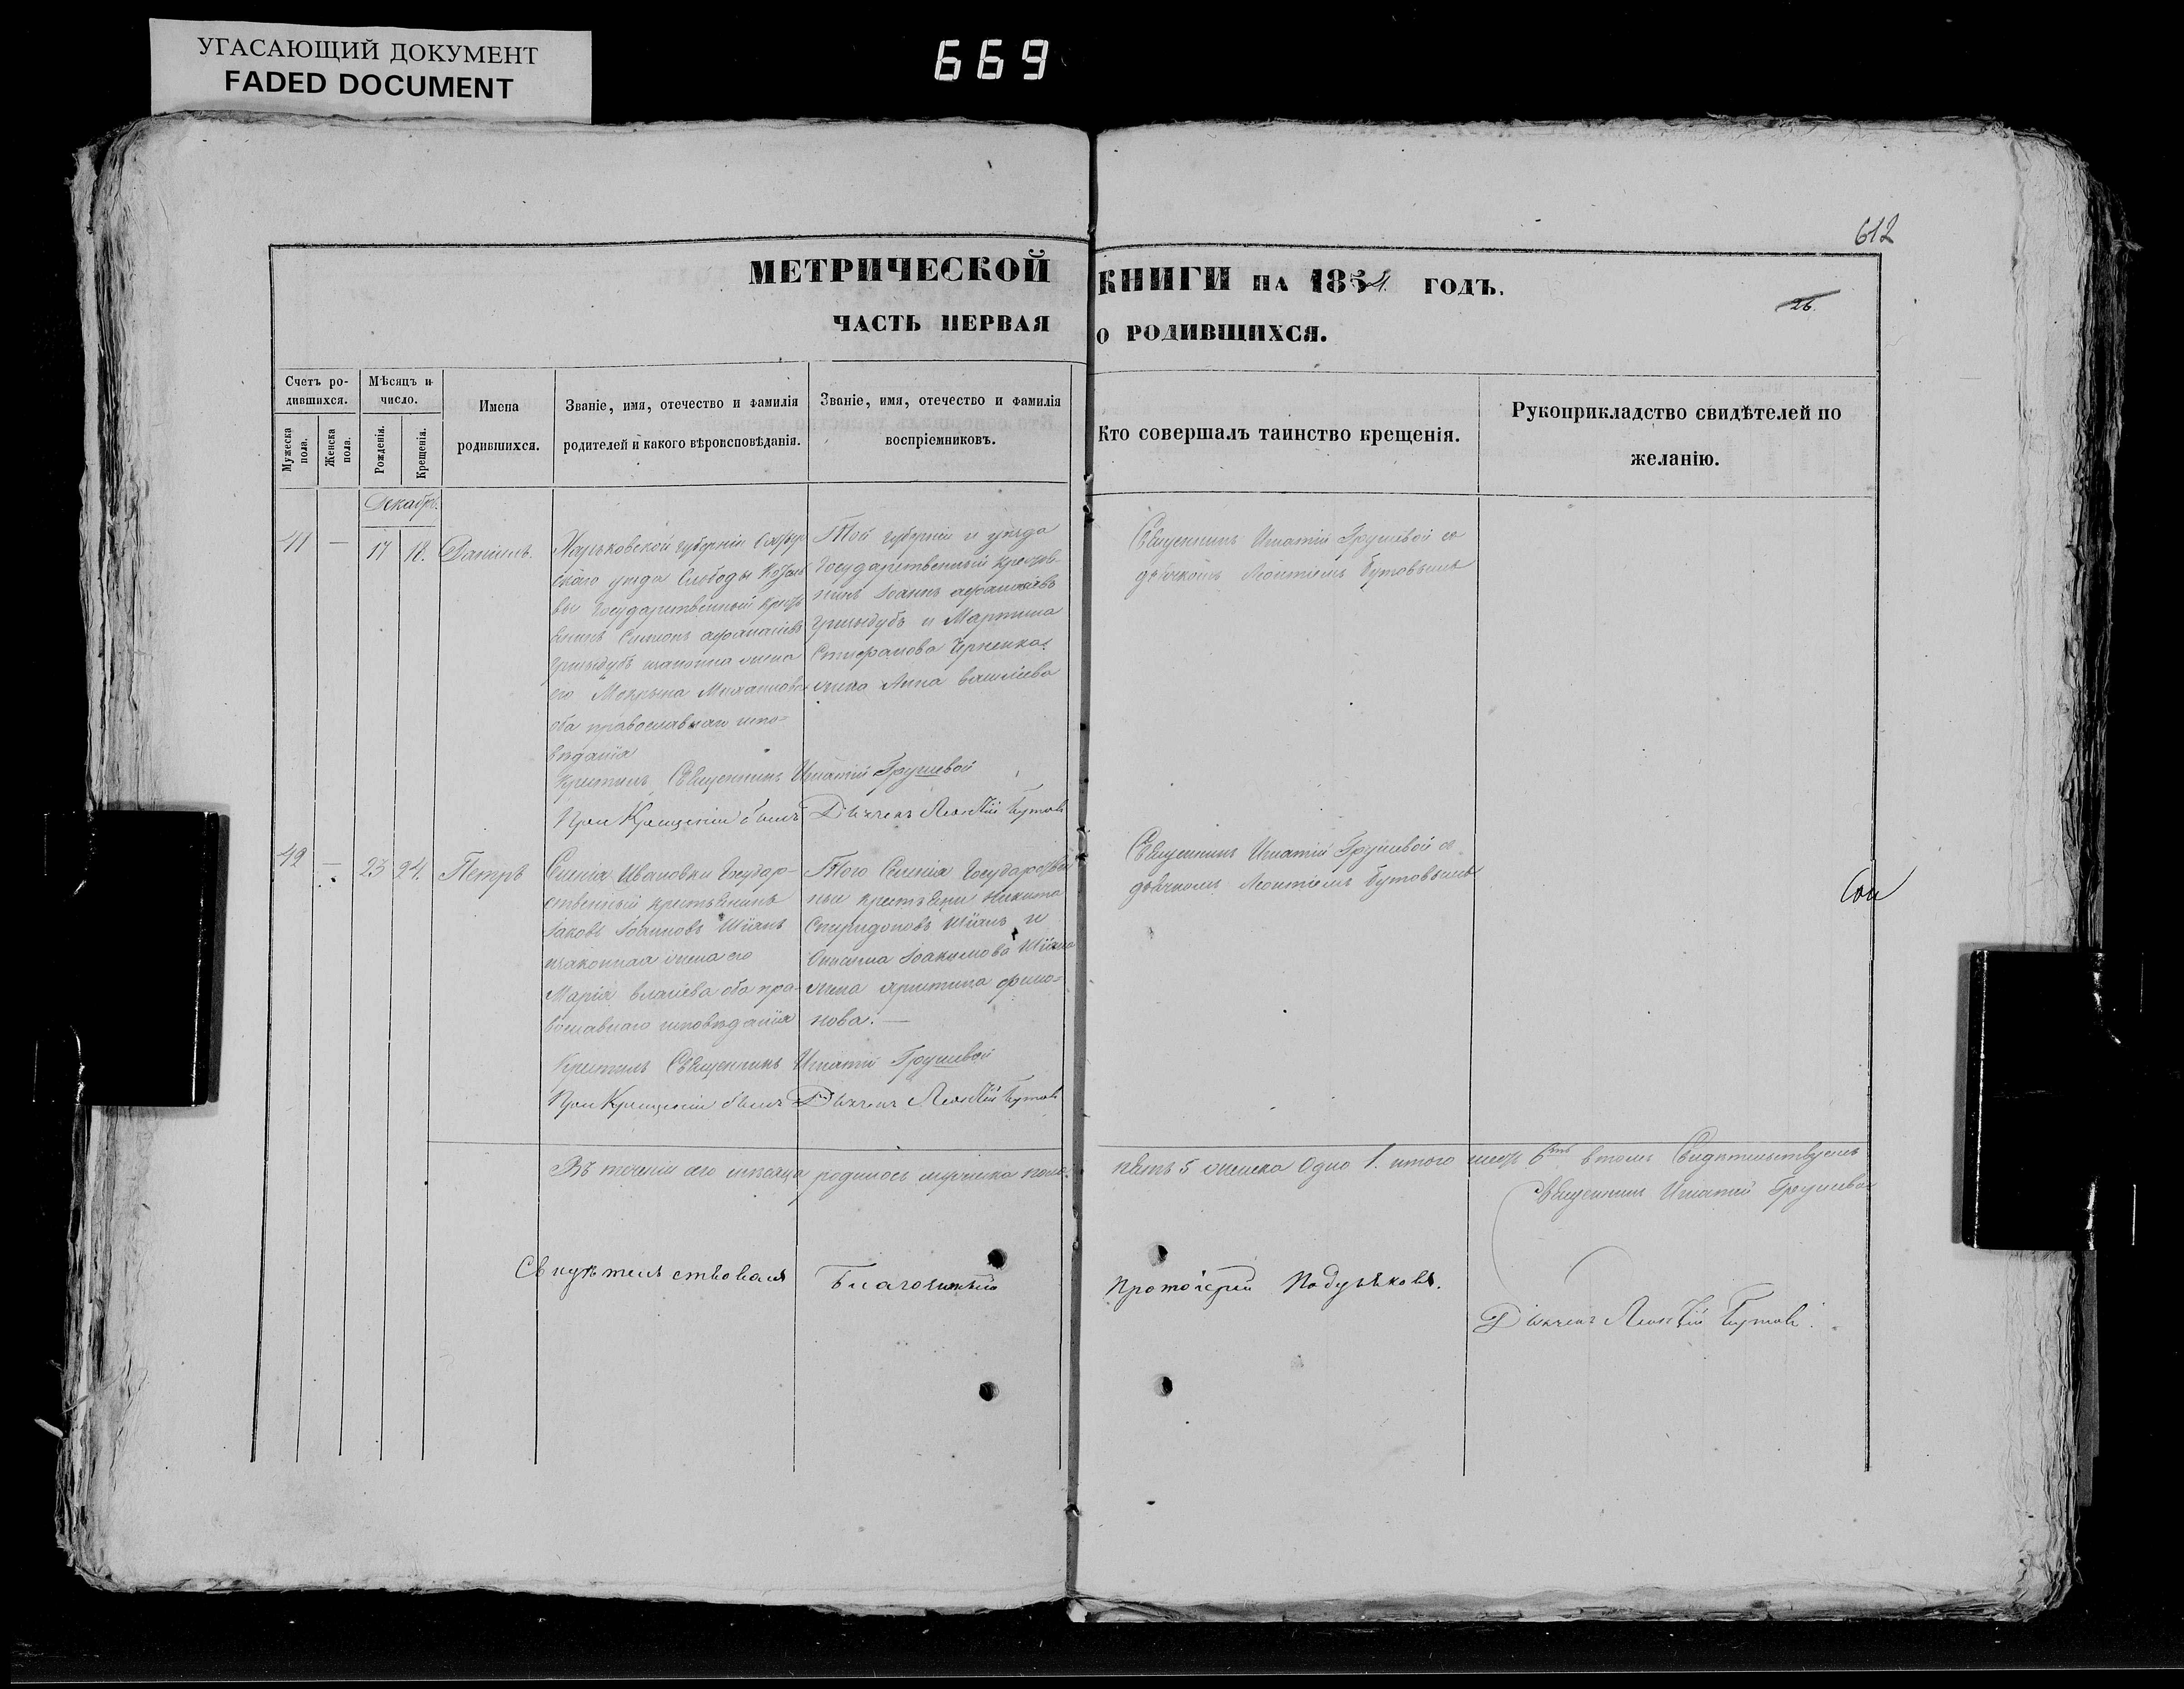 УГАСАЮЩИЙ ДОКУМЕНТ
FADED DOCUMENT
669
612
МЕТРИЧЕСКОЙ КНИГИ НА 1854 ГОДЪ.
26.
ЧАСТЬ ПЕРВАЯ О РОДИВШИХСЯ.
Счетъ ро-
дившихся.
Мужеска
пола.
Женска
пола.
Мѣсяцъ и
число.
Рожденія.
Крещенія.
Имена
родившихся.
Званіе, имя, отечество и фамилія
родителей и какого вѣроисповѣданія.
Званіе, имя, отечество и фамилія
воспріемниковъ.
Кто совершалъ таинство крещенія.
Рукоприкладство свидѣтелей по
желанію.
Декабрь.
41 — 17 18. Даніилъ.
Харьковской губерніи
скаго уѣзда Слободы
вы государственный
Симеонъ Афанасіевъ
законна жена
его Мокрина
оба православнаго испо=
вѣданія
Той губерніи и уѣзда
Государственный крестья-
нинъ Іоаннъ Афанасіевъ
и Мартина
Стефанова Черненка
жена Анна Василіева
Священникъ Игнатій Грушевой съ
дьячкомъ Леонтіемъ Бутовымъ
Крестилъ Священникъ Игнатій Грушевой
При Крещеніи былъ Дьячекъ Леонтій Бутовъ
42 — 23 24. Петръ
Селенія Ивановки Государ-
ственный крестьянинъ
Іаковъ Іоанновъ Шіянъ
и законная жена его
Марія Власіева оба пра-
вославнаго исповѣданія
Того Селенія Государствен
ные крестьяне Никита
Спиридоновъ Шіянъ и
Іоакимова Шіяна
жена Христина Фили-
нова. —
Священникъ Игнатій Грушевой съ
дьячкомъ Леонтіемъ Бутовымъ
Крестилъ Священникъ Игнатій Грушевой
При Крещеніи былъ Дьячекъ Леонтій Бутовъ
Въ теченіи сего мѣсяца родилось мужеска пола пять 5 женска Одно 1. итого шесть 6ть в томъ Свидѣтельствуемъ
Священникъ Игнатій Грушевой
Свидѣтельствовалъ Благочинный Протоіерей
Дьячекъ Леонтій Бутовъ.